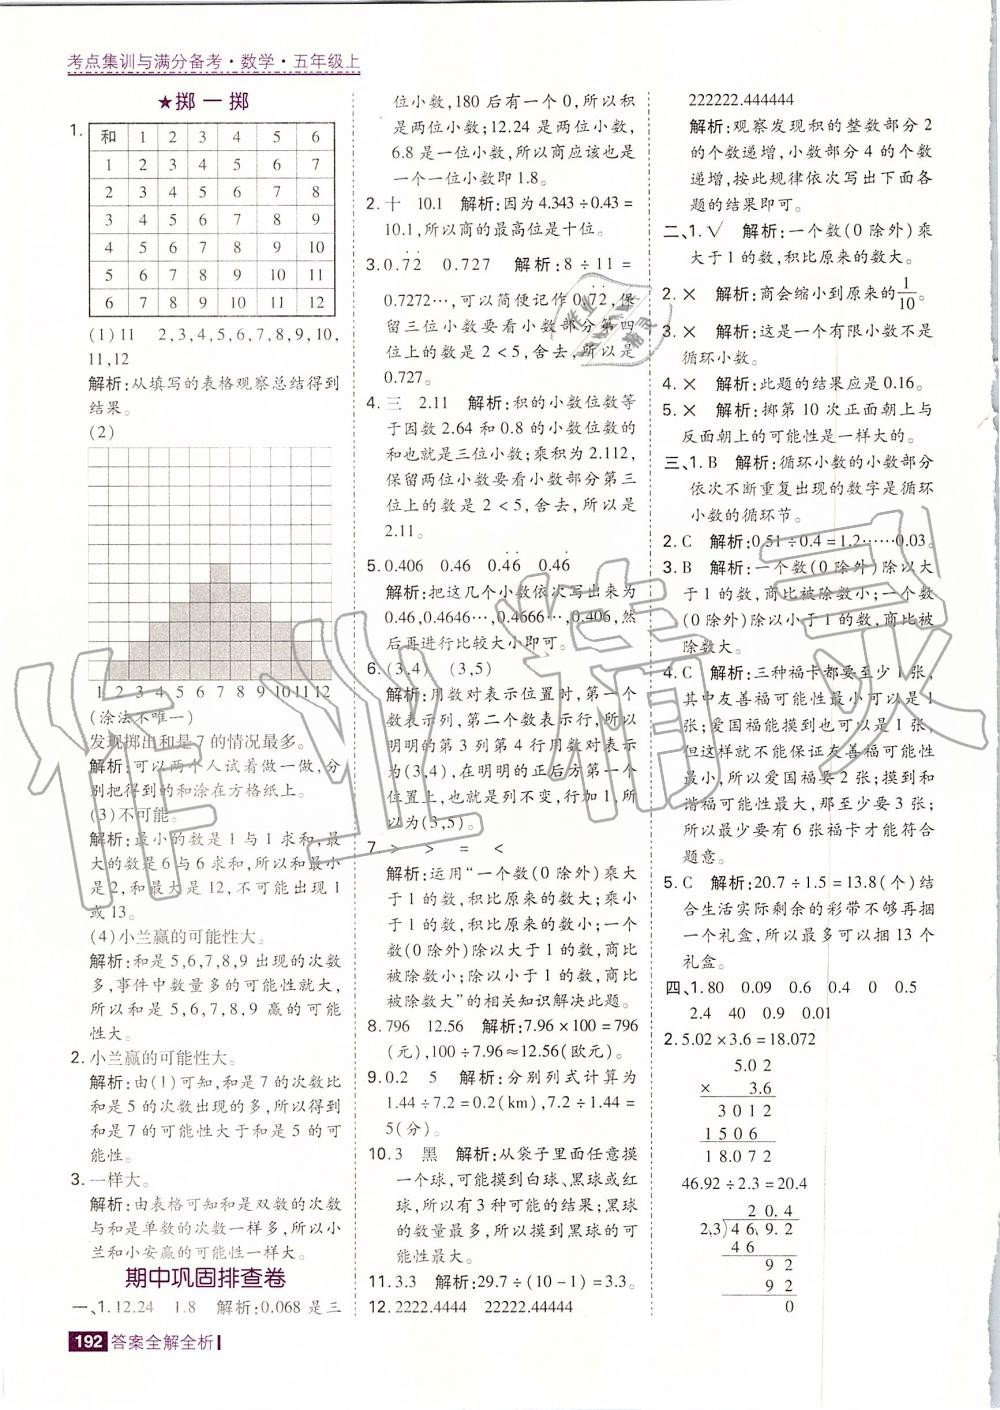 考点集训与满分备考·数学·五年级上
★掷一掷
1.
和 1 2 3 4 5 6
1 2 3 4 5 6 7
2 3 4 5 6 7 8
3 4 5 6 7 8 9
4 5 6 7 8 9 10
5 6 7 8 9 10 11
6 7 8 9 10 11 12
(1)11 2,3,4,5,6,7,8,9,10,
11,12
解析:从填写的表格观察总结得到
结果。
(2)
1 2 3 4 5 6 7 8 9 10 11 12
(涂法不唯一)
发现掷出和是7的情况最多。
解析:可以两个人试着做一做,分
别把得到的和涂在方格纸上。
(3)不可能。
解析:最小的数是1与1求和,最
大的数是6与6求和,所以和最小
是2,和最大是12,不可能出现1
或13。
(4)小兰赢的可能性大。
解析:和是5,6,7,8,9出现的次数
多,事件中数量多的可能性就大,
所以和是5,6,7,8,9赢的可能
性大。
2.小兰赢的可能性大。
解析:由(1)可知,和是7的次数比
和是5的次数出现的多,所以得到
和是7的可能性大于和是5的可
能性。
3.一样大。
解析:由表格可知和是双数的次数
与和是单数的次数一样多,所以小
兰和小安赢的可能性一样大。
期中巩固排查卷
一、1.12.24 1.8 解析:0.068是三
192 答案全解全析
位小数,180后有一个0,所以积
是两位小数;12.24是两位小数,
6.8是一位小数,所以商应该也是
一个一位小数即1.8。
2.十 10.1 解析:因为4.343÷0.43=
10.1,所以商的最高位是十位。
3.0.7̇2̇ 0.727 解析:8÷11=
0.7272…,可以简便记作0.7̇2̇,保
留三位小数要看小数部分第四
位上的数是2<5,舍去,所以是
0.727。
4.三 2.11 解析:积的小数位数等
于因数2.64和0.8的小数位数的
和也就是三位小数;乘积为2.112,
保留两位小数要看小数部分第三
位上的数是2<5,舍去,所以是
2.11。
5.0.406 0.46 0.4̇6̇ 0.46̇
解析:把这几个小数依次写出来为
0.46,0.4646…,0.4666…,0.406,然
后再进行比较大小即可。
6.(3,4) (3,5)
解析:用数对表示位置时,第一个
数表示列,第二个数表示行,所以
明明的第3列第4行用数对表示
为(3,4),在明明的正后方第一个
位置上,也就是列不变,行加1,所
以为(3,5)。
7.> > = <
解析:运用“一个数(0除外)乘大
于1的数,积比原来的数大;乘小
于1的数,积比原来的数小;一个
数(0除外)除以大于1的数,商比
被除数小;除以小于1的数,商比
被除数大”的相关知识解决此题。
8.796 12.56 解析:7.96×100=796
(元),100÷7.96≈12.56(欧元)。
9.0.2 5 解析:分别列式计算为
1.44÷7.2=0.2(km),7.2÷1.44=
5(分)。
10.3 黑 解析:从袋子里面任意摸
一个球,可能摸到白球、黑球或红
球,所以有3种可能的结果;黑球
的数量最多,所以摸到黑球的可
能性最大。
11.3.3 解析:29.7÷(10-1)=3.3。
12.2222.4444 22222.44444
222222.444444
解析:观察发现积的整数部分2
的个数递增,小数部分4的个数
递增,按此规律依次写出下面各
题的结果即可。
二、1.√ 解析:一个数(0除外)乘
大于1的数,积比原来的数大。
2.× 解析:商会缩小到原来的1/10。
3.× 解析:这是一个有限小数不是
循环小数。
4.× 解析:此题的结果应是0.16。
5.× 解析:掷第10次正面朝上与
反面朝上的可能性是一样大的。
三、1.B 解析:循环小数的小数部分
依次不断重复出现的数字是循环
小数的循环节。
2.C 解析:0.51÷0.4=1.2……0.03。
3.B 解析:一个数(0除外)除以大
于1的数,商比被除数小;一个数
(0除外)除以小于1的数,商比被
除数大。
4.C 解析:三种福卡都要至少1张,
其中友善福可能性最小可以是1
张;爱国福能摸到也可以是1张,
但这样就不能保证友善福可能性
最小,所以爱国福要2张;摸到和
谐福可能性最大,那至少要3张;
所以最少要有6张福卡才能符合
题意。
5.C 解析:20.7÷1.5=13.8(个)结
合生活实际剩余的彩带不够再捆
一个礼盒,所以最多可以捆13个
礼盒。
四、1.80 0.09 0.6 0.4 0 0.5
2.4 40 0.9 0.01
2.5.02×3.6=18.072
5.02
× 3.6
3012
1506
18.072
46.92÷2.3=20.4
20.4
2,3)46,9.2
46
92
92
0
作业精灵
作业精灵